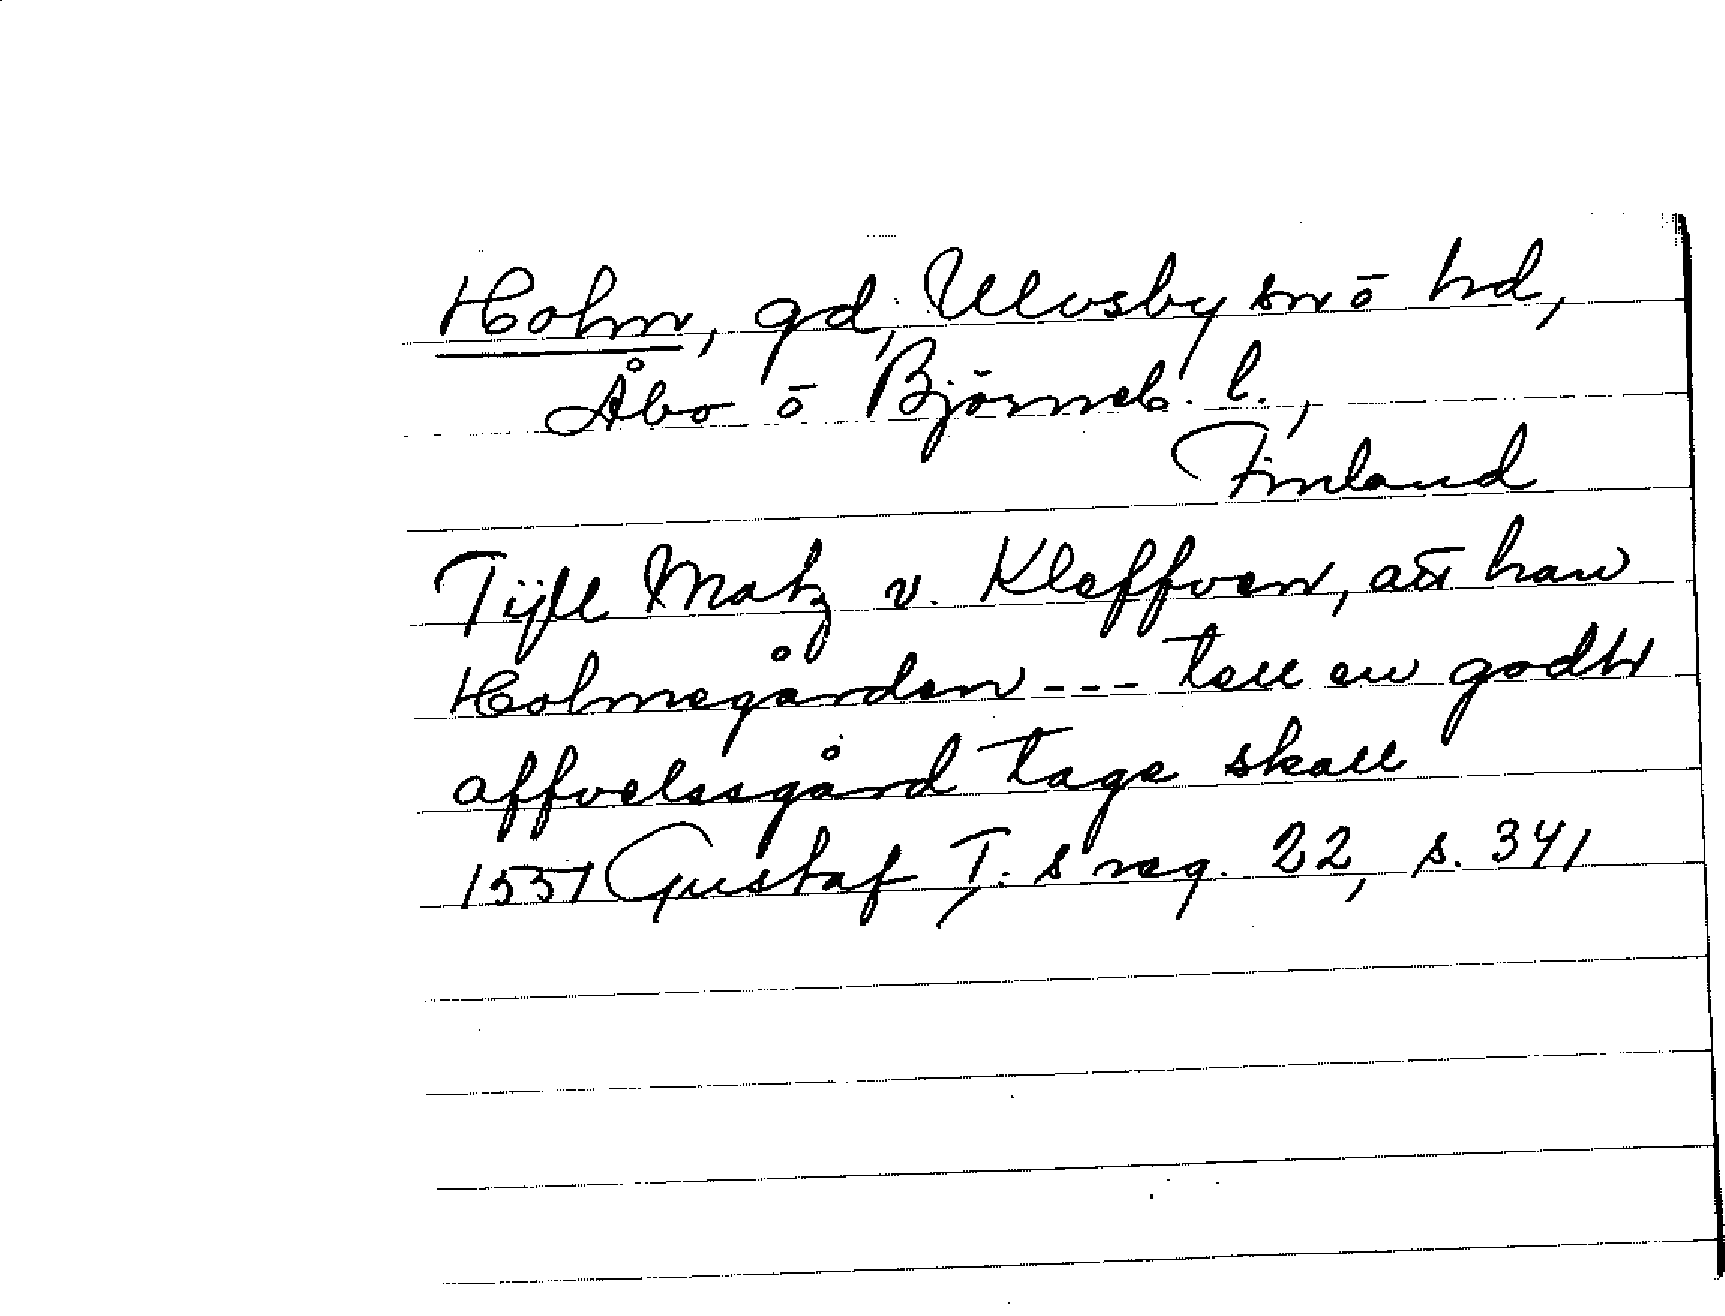 Holm, gd, Ulvsby sn ō hd,
Åbo ō Björneb. l.,
Finland
Tijll Matz v. Kleffven, att han
Holmegården --- tell en godh
affvelssgård tage skall
1551 Gustaf I:s reg. 22, s. 341